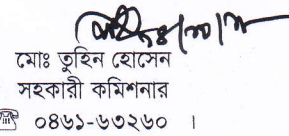 মোঃ তুহিন হোসেন
সহকারী কমিশনার
☎ ০৪৬১-৬৩২৬০ ।